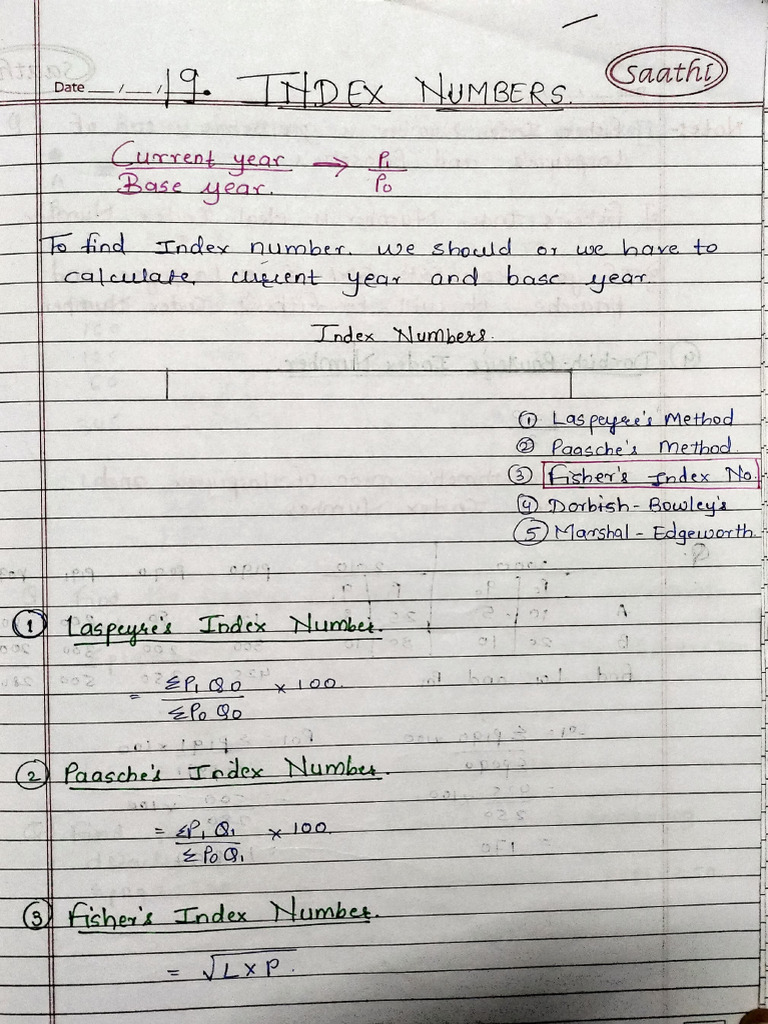 saathi
Date __/__/
19. INDEX NUMBERS.
Current year → P1
Base year. P0
To find Index number. we should or we have to
calculate current year and base year.
Index Numbers.
① Laspeyre's Method
② Paasche's Method.
③ Fisher's Index No.
④ Dorbish - Bowley's
⑤ Marshal - Edgeworth.
① Laspeyre's Index Number.
= ΣP1 Q0 × 100.
ΣP0 Q0
② Paasche's Index Number.
= ΣP1 Q1 × 100.
ΣP0 Q1
③ Fisher's Index Number.
= √L × P.